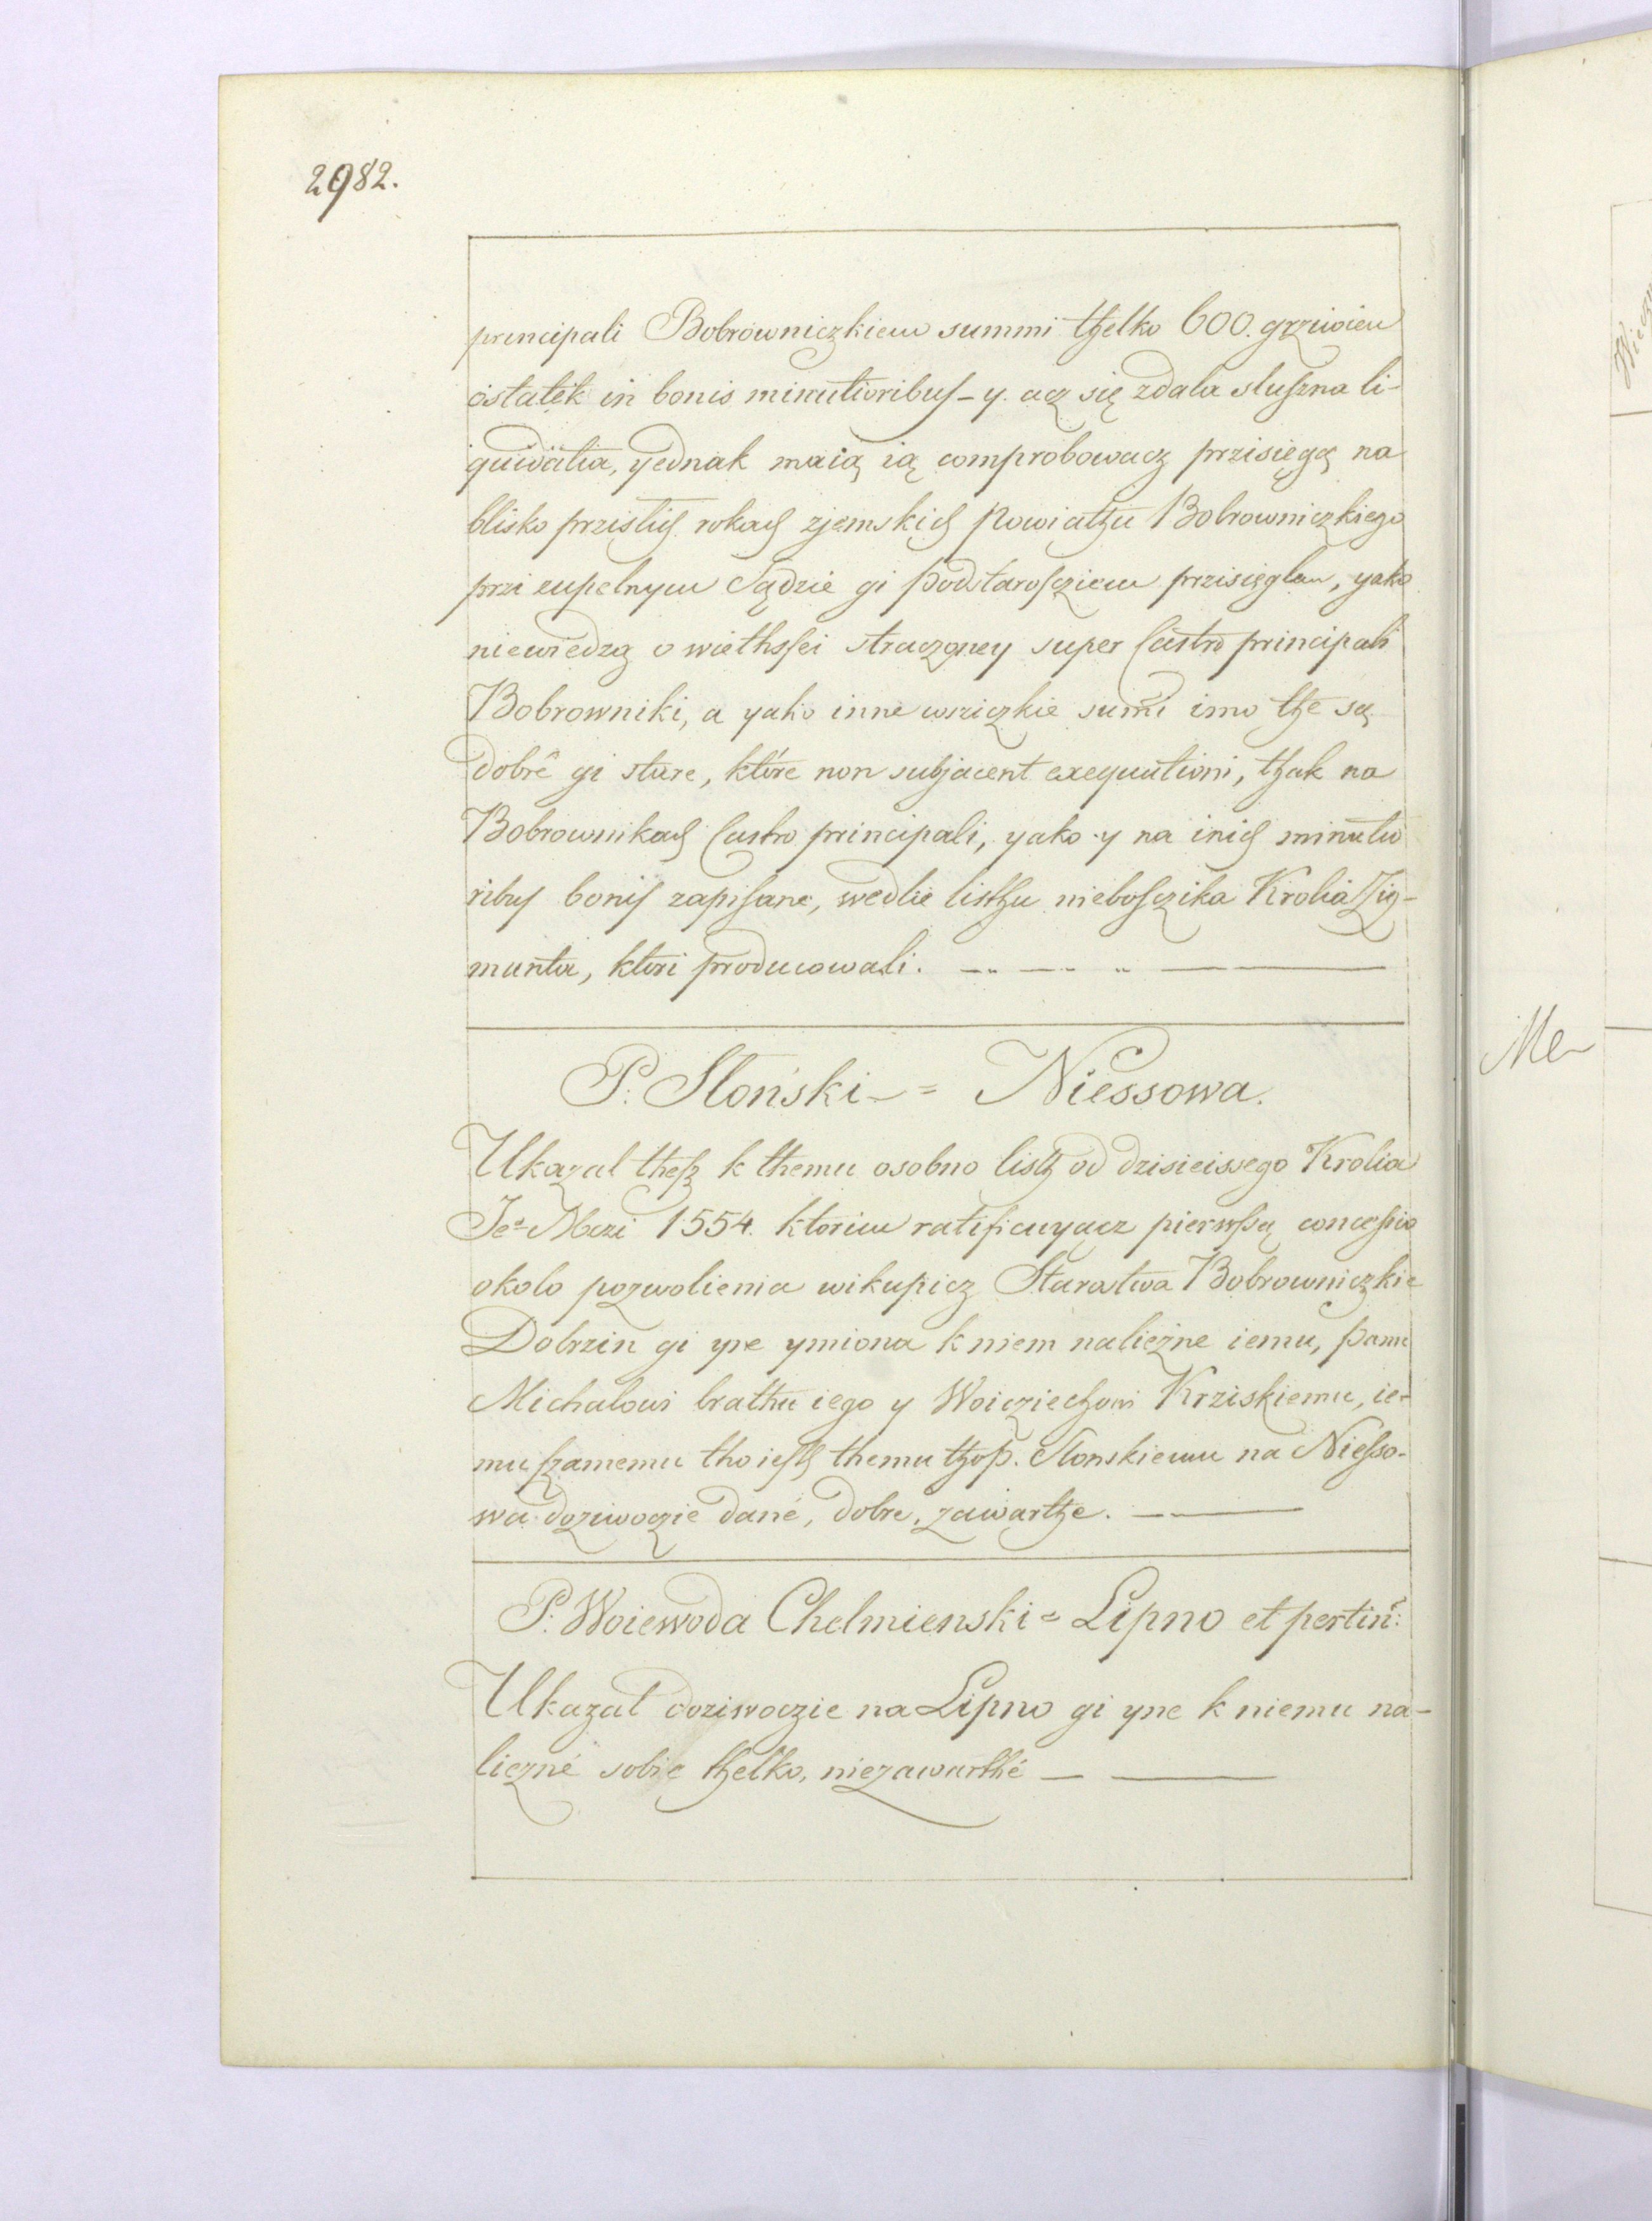 2982.
principali Bobrowniczkiem summi tzelko 600. grziwien
ostatek in bonis minutioribus – y. acz się zdala sluszna li-
quidatia, yednak maią ią comprobowacz przisięgą na
blisko przislich rokach zjemskich powiatzu Bobrowniczkiego
przi zupelnym Sądzie gi podstaroscziem przisięglem, yako
niewiedzą o wiethssei straczoney super Castro principali
Bobrowniki, a yako inne wsziczkie summi imo tze są
dobre gi stare, które non subjacent exequutioni, tzak na
Bobrownikach Castro principali, yako y na inich minutio
ribus bonis zapisane, wedlie listzu niebosczika Krolia Zig-
munta, ktori producowali.
P. Sloński = Niessowa.
Ukazal thesz k themu osobno listz od dzisieissego Krolia
Jeº Mczi 1554. ktorim ratificuyącz pierwszą concessią
okolo pozwolienia wikupicz Starostwa Bobrowniczkie
Dobrzin gi yne ymiona k niem należne iemu, panu
Michalowi brathu iego y Woicziechowi Krziskiemu, ie-
mu szamemu tho iestz themu tzo p. Slonskiemu na Niesso-
wa doziwoczie dané, dobre, zawartze.
P. Woiewoda Chelmienski = Lipno et pertin:
Ukazal doziwoczie na Lipno gi yne k niemu na-
liezné sobie tzelko, niezawarthé
Me